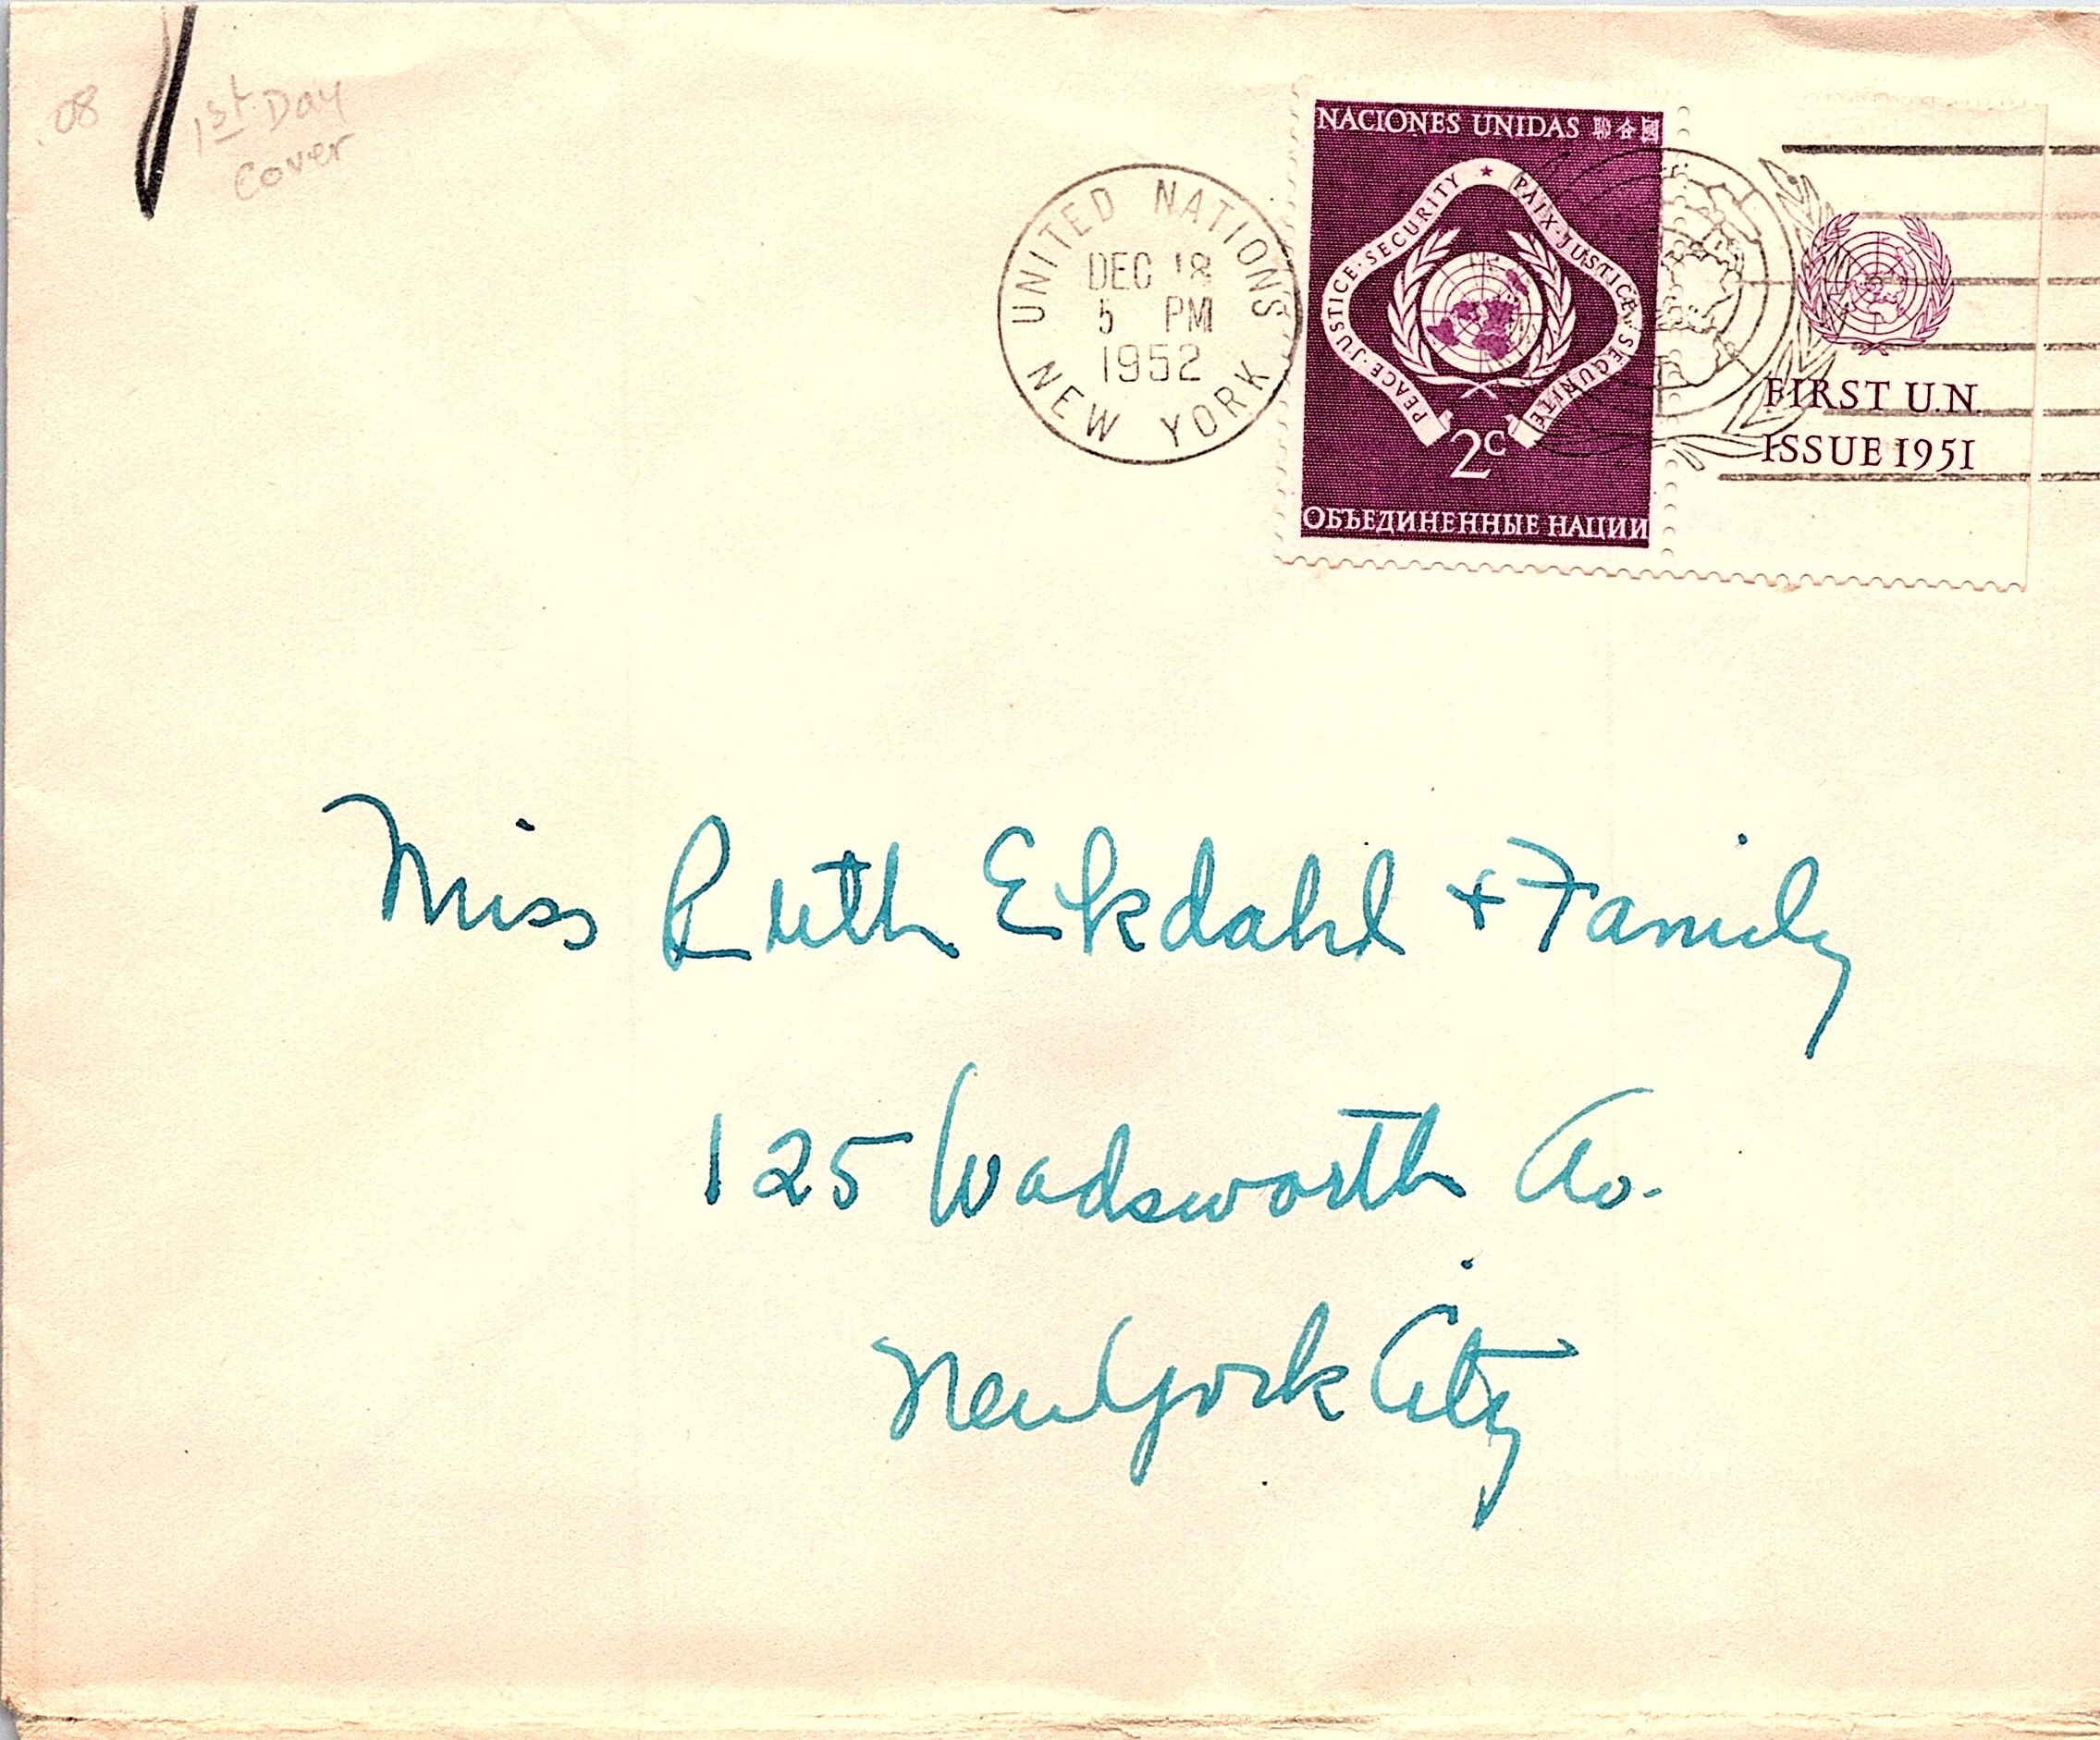 .08
1st Day
Cover
UNITED NATIONS
DEC 18
5 PM
1952
NEW YORK
NACIONES UNIDAS 聯合國
PEACE·JUSTICE·SECURITY ★ PAIX·JUSTICE·SECURITE
2c
ОБЪЕДИНЕННЫЕ НАЦИИ
FIRST U.N.
ISSUE 1951
Miss Ruth Ekdahl + Family
125 Wadsworth Av.
New York City